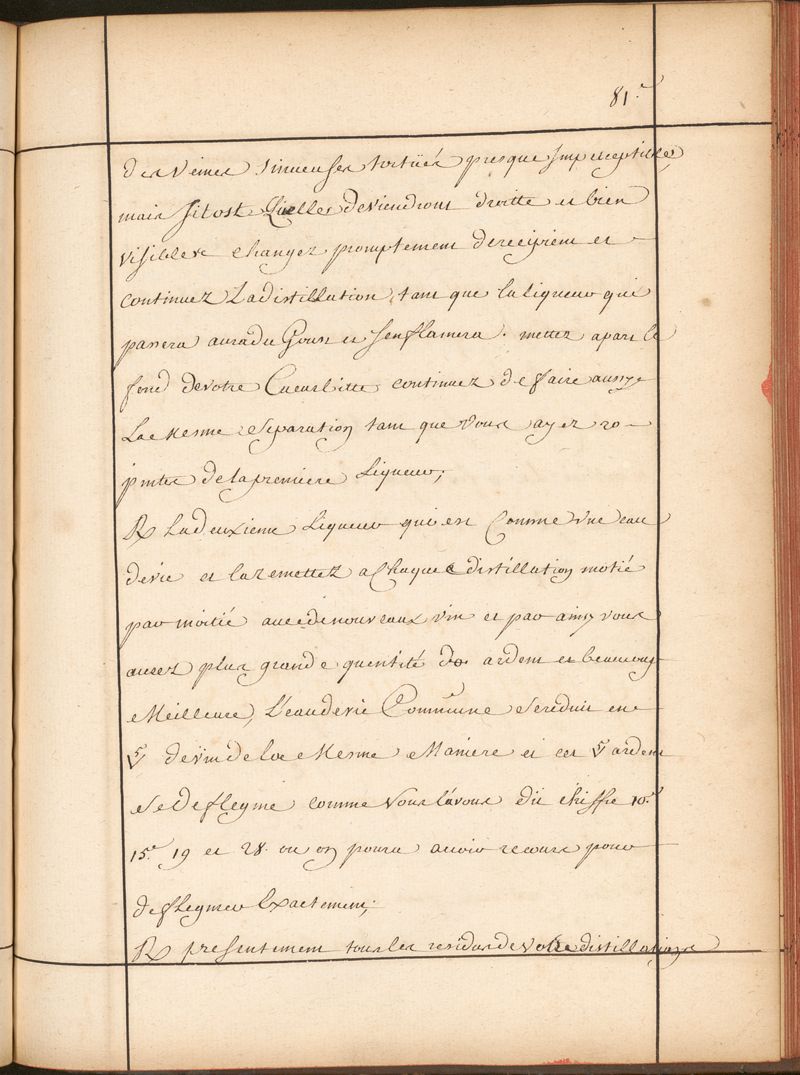 81.e
des veines sinueuses tortües presque Imperceptible,
mais sitost Quelles deviendront droitte et bien
visibles changez promptement derecipient et
continuez Ladistillation, tant que laliqueur qui
passera auradu Goust et senflamera. mettez apart le
fond devotre Cucurbitte continuez defaire aussy
La mesme Separation tant que vous ayez 20
pintes delapremiere Liqueur;
R Ladeuxieme Liqueur qui est Comme vne eau
devie et laremettez a Chaque distillation motié
par moitié avecdenouveaux vin et par ainsy vous
aurez plus grande quentité de ardent et beaucoup
Meilleure, L'eaudevie Commune Sereduit en
🜇 devin dela Mesme Maniere et cet 🜇 ardent
Se Deflegme comme Vous l'avons dit chiffre 10.e
15.e 19 et 28. ou on poura avoir recours pour
deflegmer Exactement;
R presentement tous les residus de votre distillations